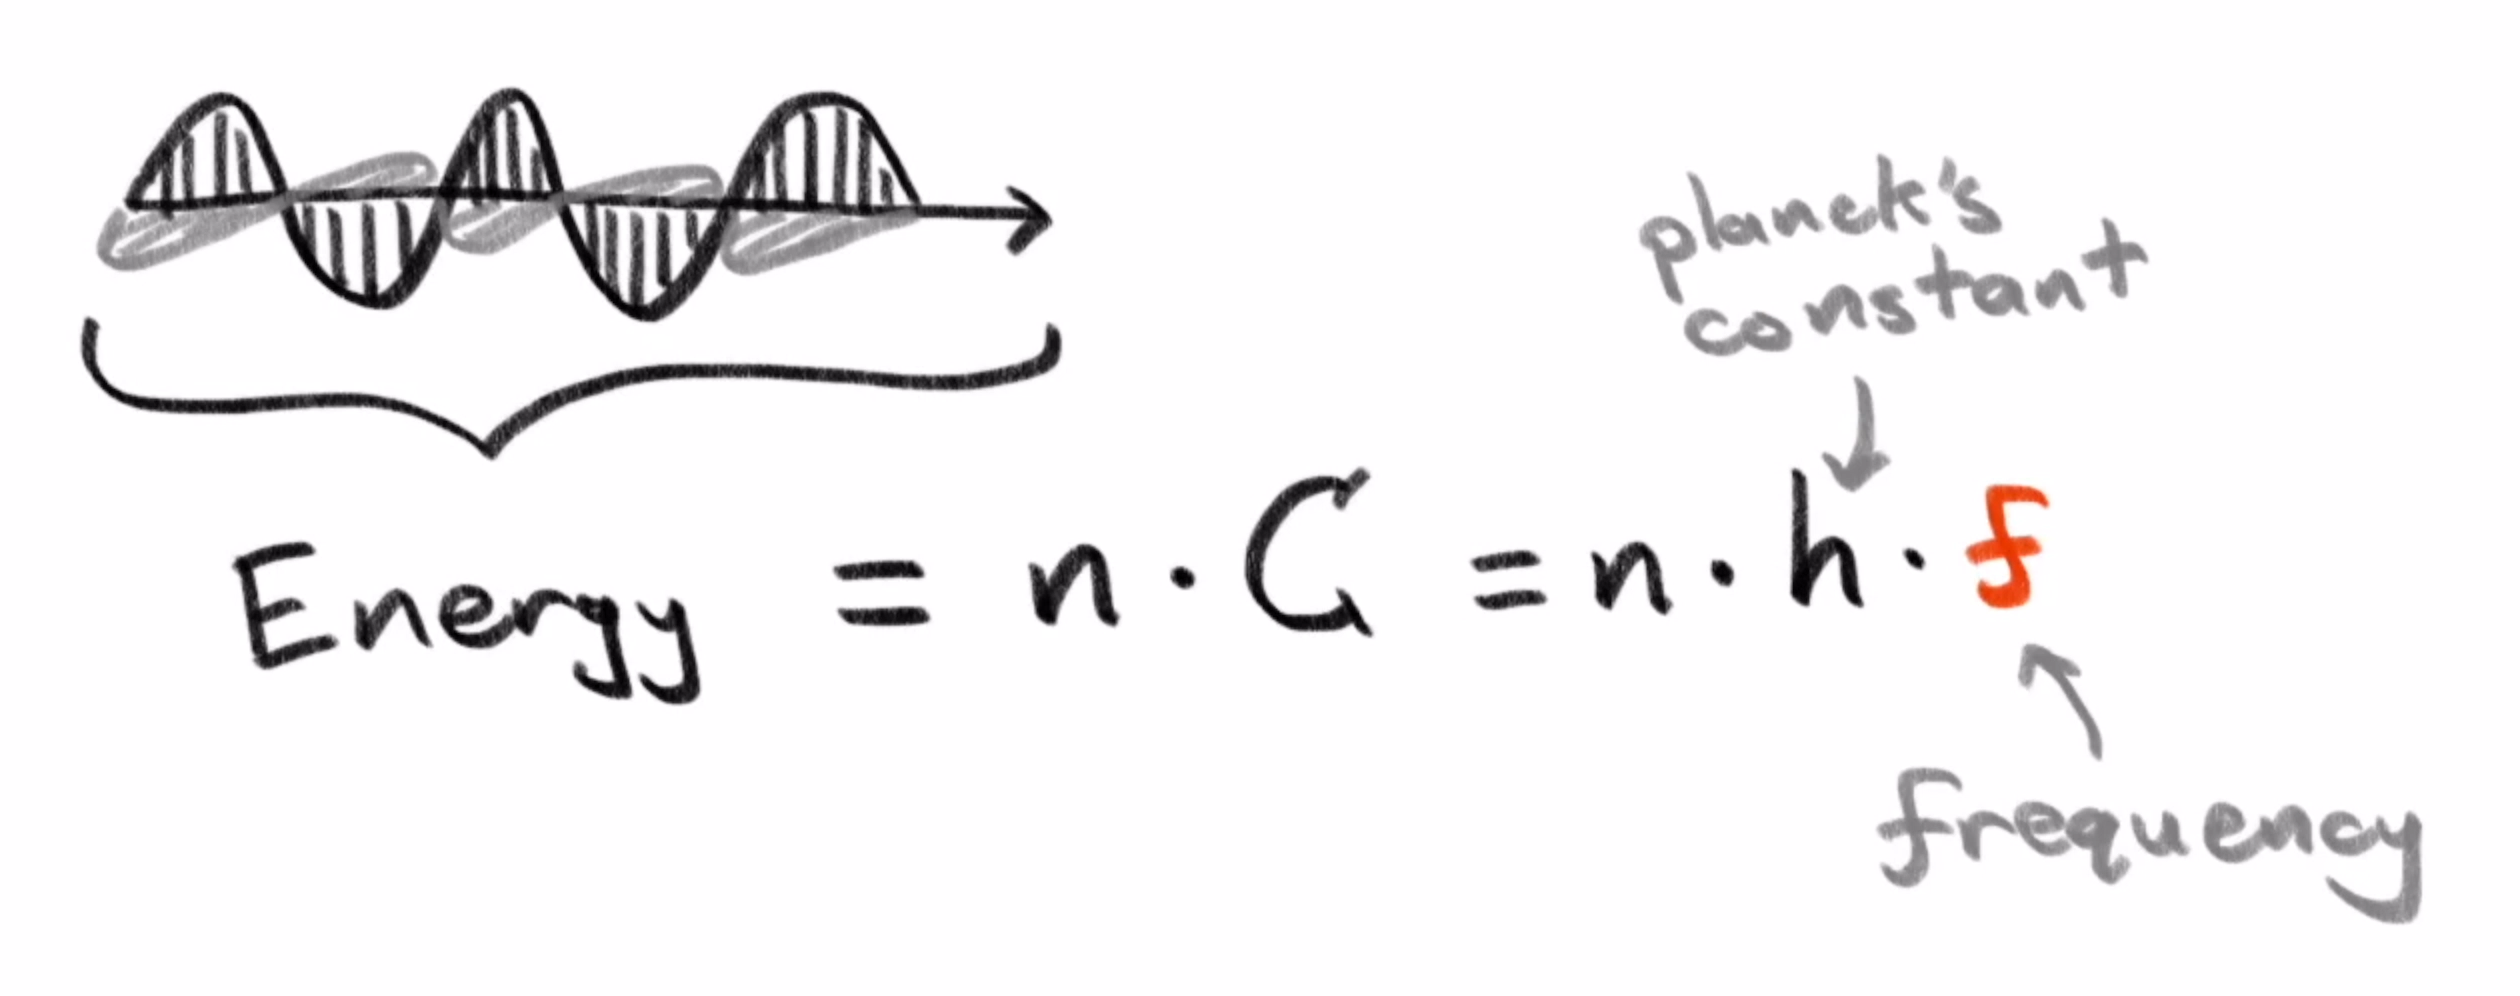 planck's
constant
Energy = n · C = n · h · f
frequency